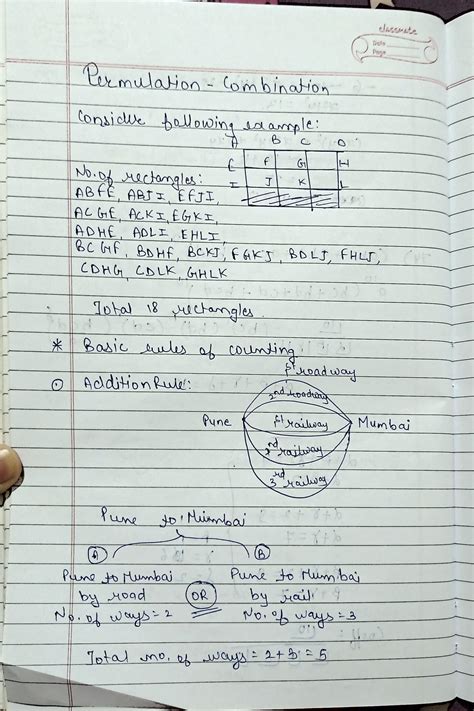 classmate
Date
Page
Permulation - Combination
Consider following example:
A B C D
E F G H
I J K L
No. of rectangles:
ABFE, ABJI, EFJI,
ACGE, ACKI, EGKI,
ADHE, ADLI, EHLI,
BCGF, BDHF, BCKJ, FGKJ, BDLJ, FHLJ,
CDHG, CDLK, GHLK
Total 18 rectangles
* Basic rules of counting
Addition Rule:
1st roadway
2nd roadway
Pune 1st railway Mumbai
2nd railway
3rd railway
Pune to Mumbai
A B
Pune to Mumbai Pune to Mumbai
by road OR by rail
No. of ways = 2 No. of ways = 3
Total no. of ways = 2+3 = 5